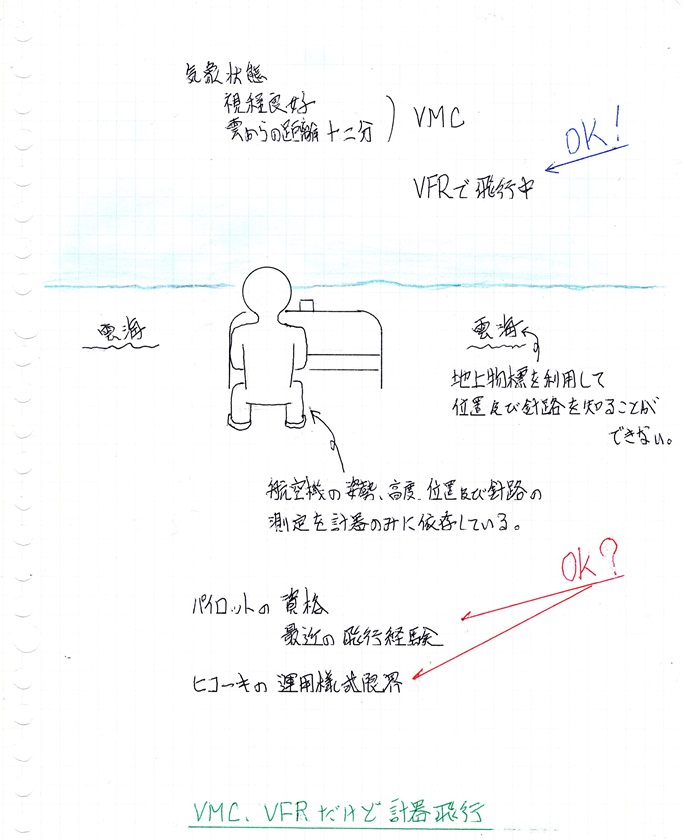 気象状態
視程良好
雲からの距離 十二分
VMC
OK!
VFRで飛行中
雲海
雲海
地上物標を利用して
位置及び針路を知ることが
できない。
航空機の姿勢、高度、位置及び針路の
測定を計器のみに依存している。
OK?
パイロットの 資格
最近の飛行経験
ヒコーキの 運用様式限界
VMC、VFRだけど計器飛行